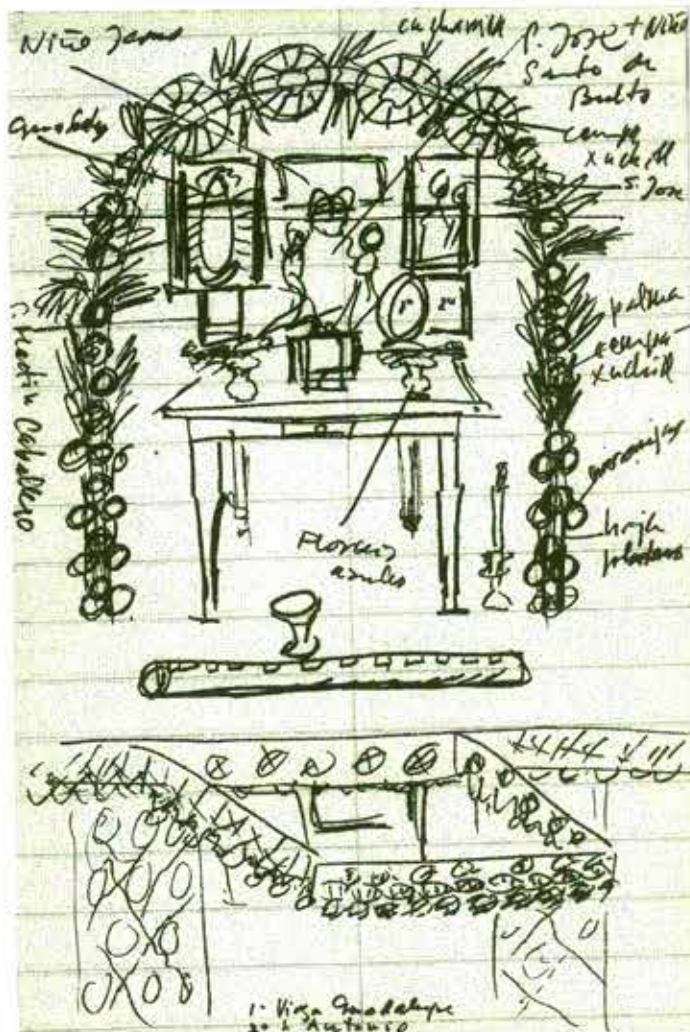 Niño Jesus
cucharilla
S. Jose + Niño
Santo de
Bulto
cempa
xuchill
S. Jose
S. Martin Caballero
palma
cempa
xuchill
naranjas
hoja
platano
1º
2º
Floreros
azules
1º Virgen Guadalupe
2º S. Antonio